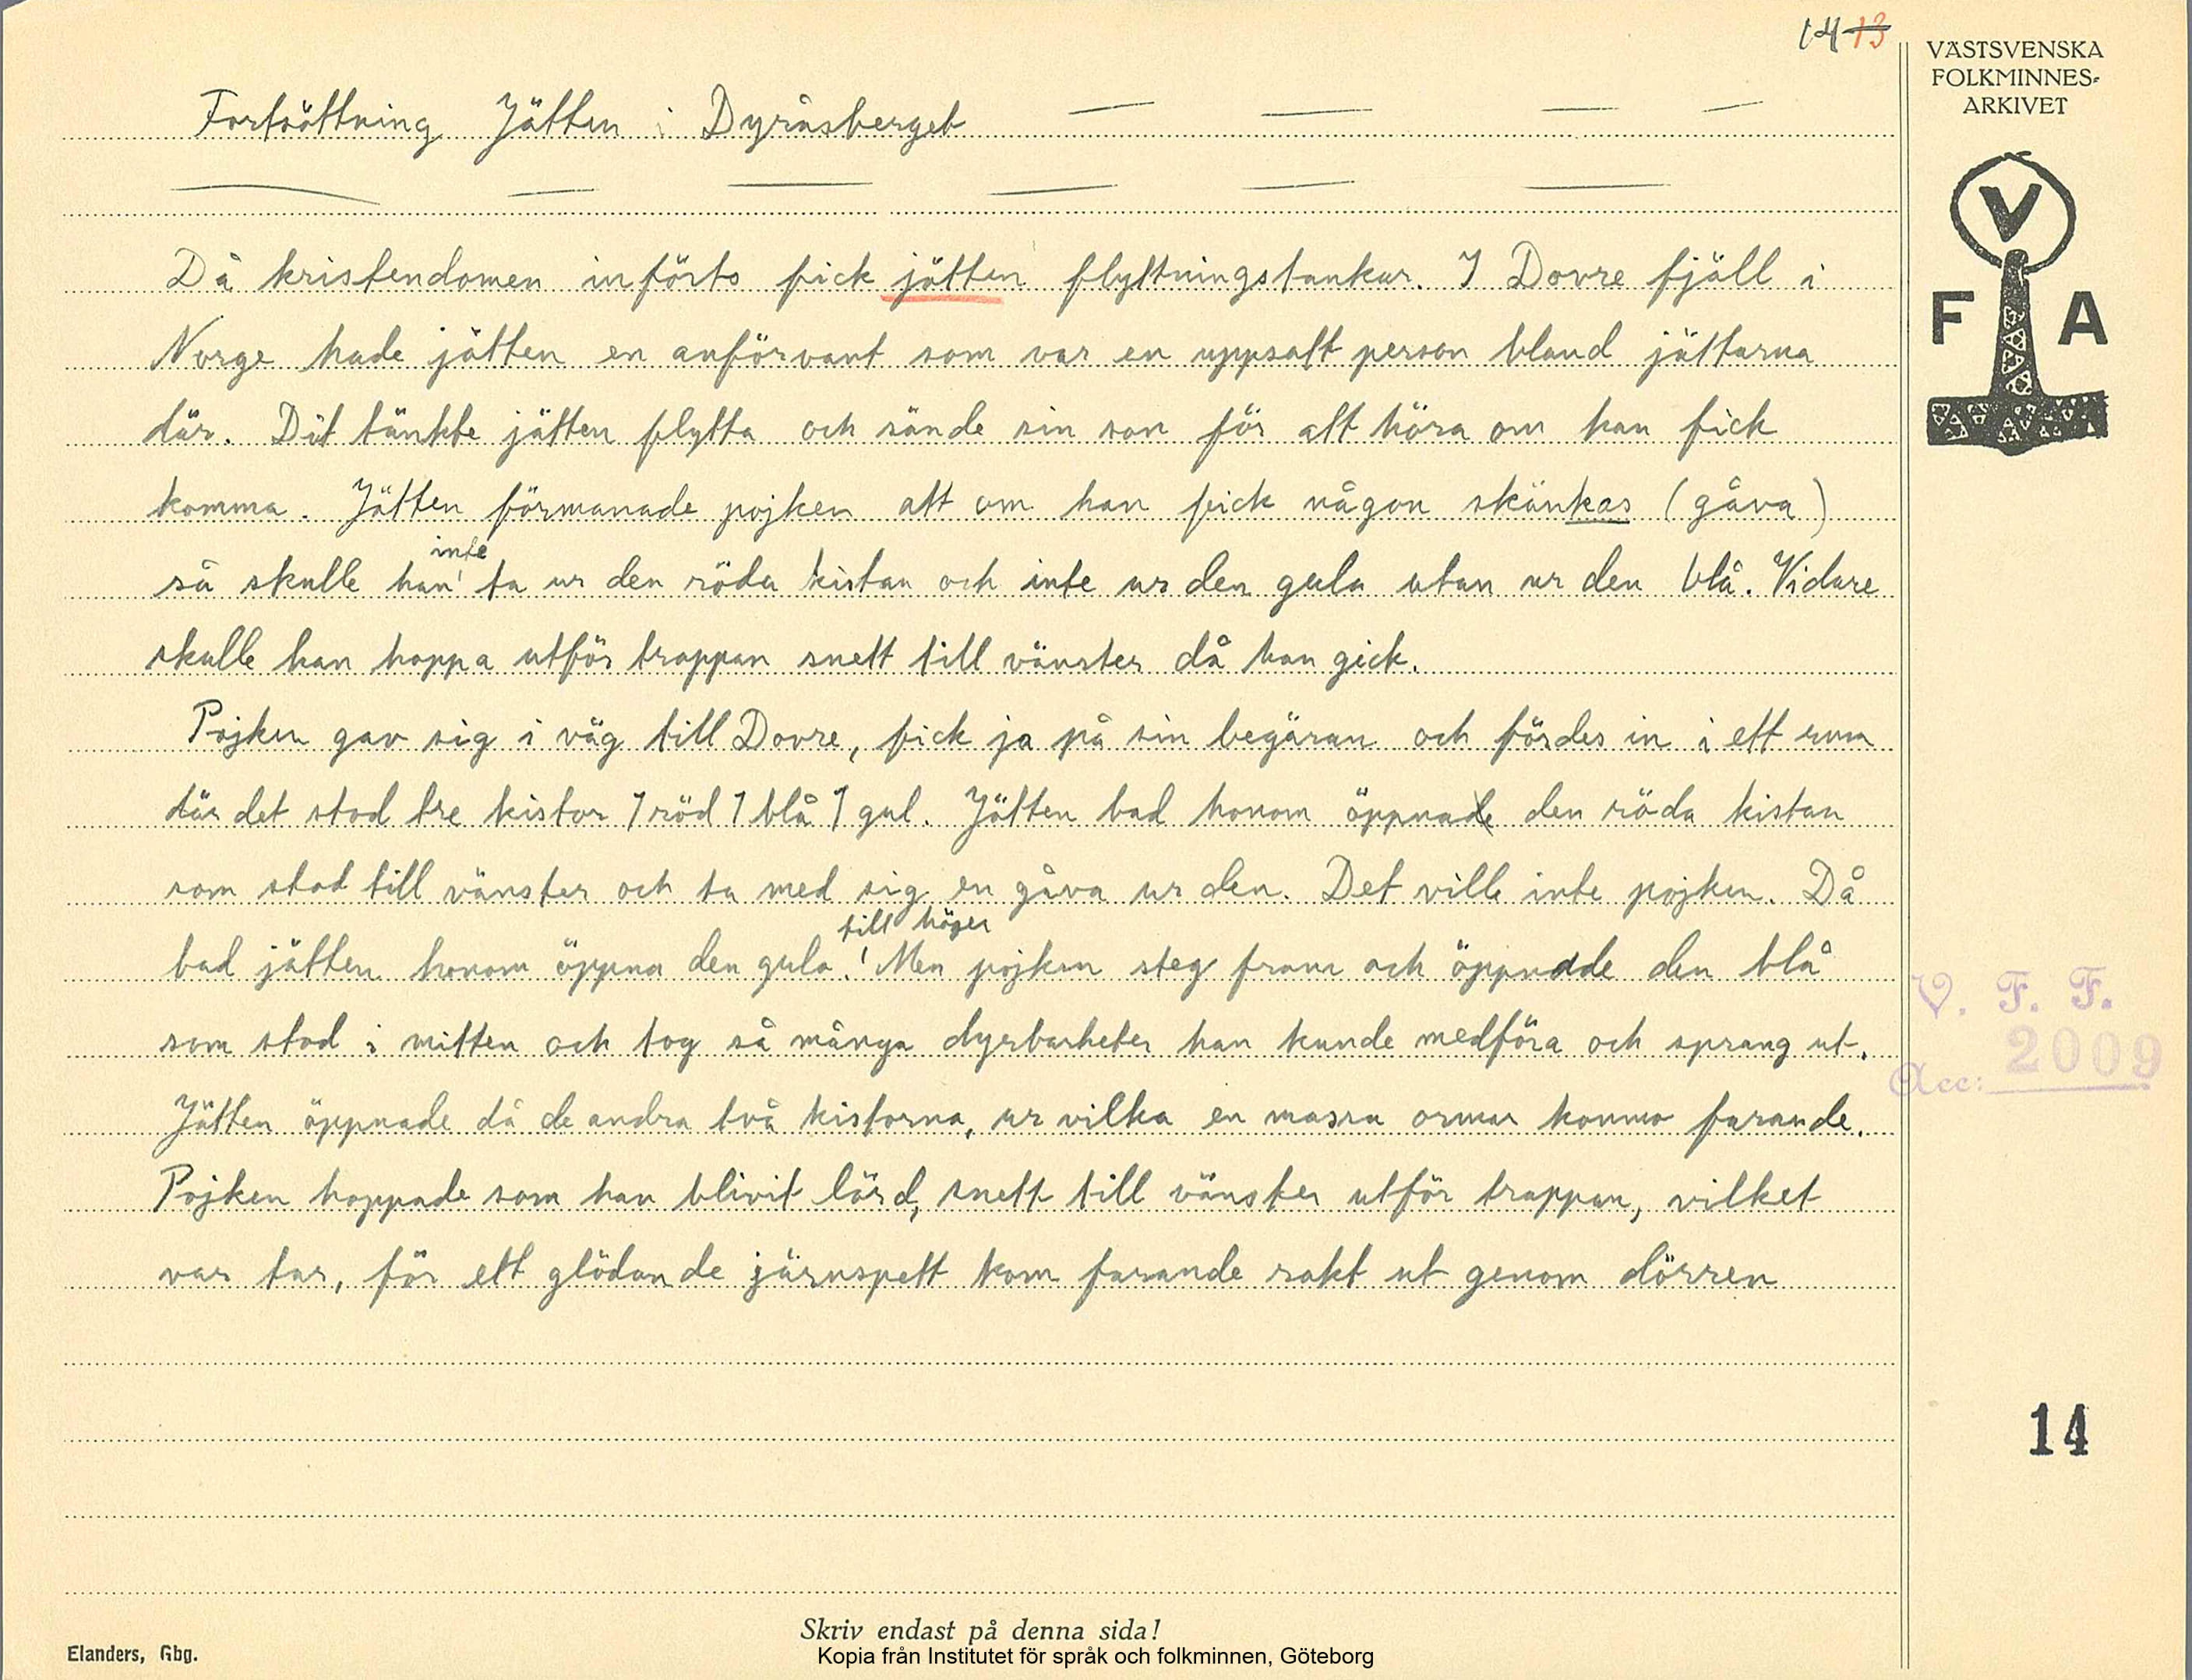 14 13
VÄSTSVENSKA
FOLKMINNES-
ARKIVET
V
F A
Fortsättning Jätten i Dyråsberget
Då kristendomen införts fick jätten flyttningstankar. I Dovre fjäll i
Norge hade jätten en anförvant som var en uppsatt person bland jättarna
där. Dit tänkte jätten flytta och sände sin son för att höra om han fick
komma. Jätten förmanade pojken att om han fick någon skänkas (gåva)
så skulle han inte ta ur den röda kistan och inte ur den gula utan ur den blå. Vidare
skulle han hoppa utför trappan snett till vänster då han gick.
Pojken gav sig i väg till Dovre, fick ja på sin begäran och fördes in i ett rum
där det stod tre kistor 1 röd 1 blå 1 gul. Jätten bad honom öppnade den röda kistan
som stod till vänster och ta med sig en gåva ur den. Det ville inte pojken. Då
bad jätten honom öppna den gula till höger. Men pojken steg fram och öppnade den blå
som stod i mitten och tog så många dyrbarheter han kunde medföra och sprang ut.
Jätten öppnade då de andra två kistorna, ur vilka en massa ormar kommo farande.
Pojken hoppade som han blivit lärd, snett till vänster utför trappan, vilket
var tur, för ett glödande järnspett kom farande rakt ut genom dörren
V. F. F.
Acc: 2009
14
Skriv endast på denna sida!
Elanders, Gbg.
Kopia från Institutet för språk och folkminnen, Göteborg